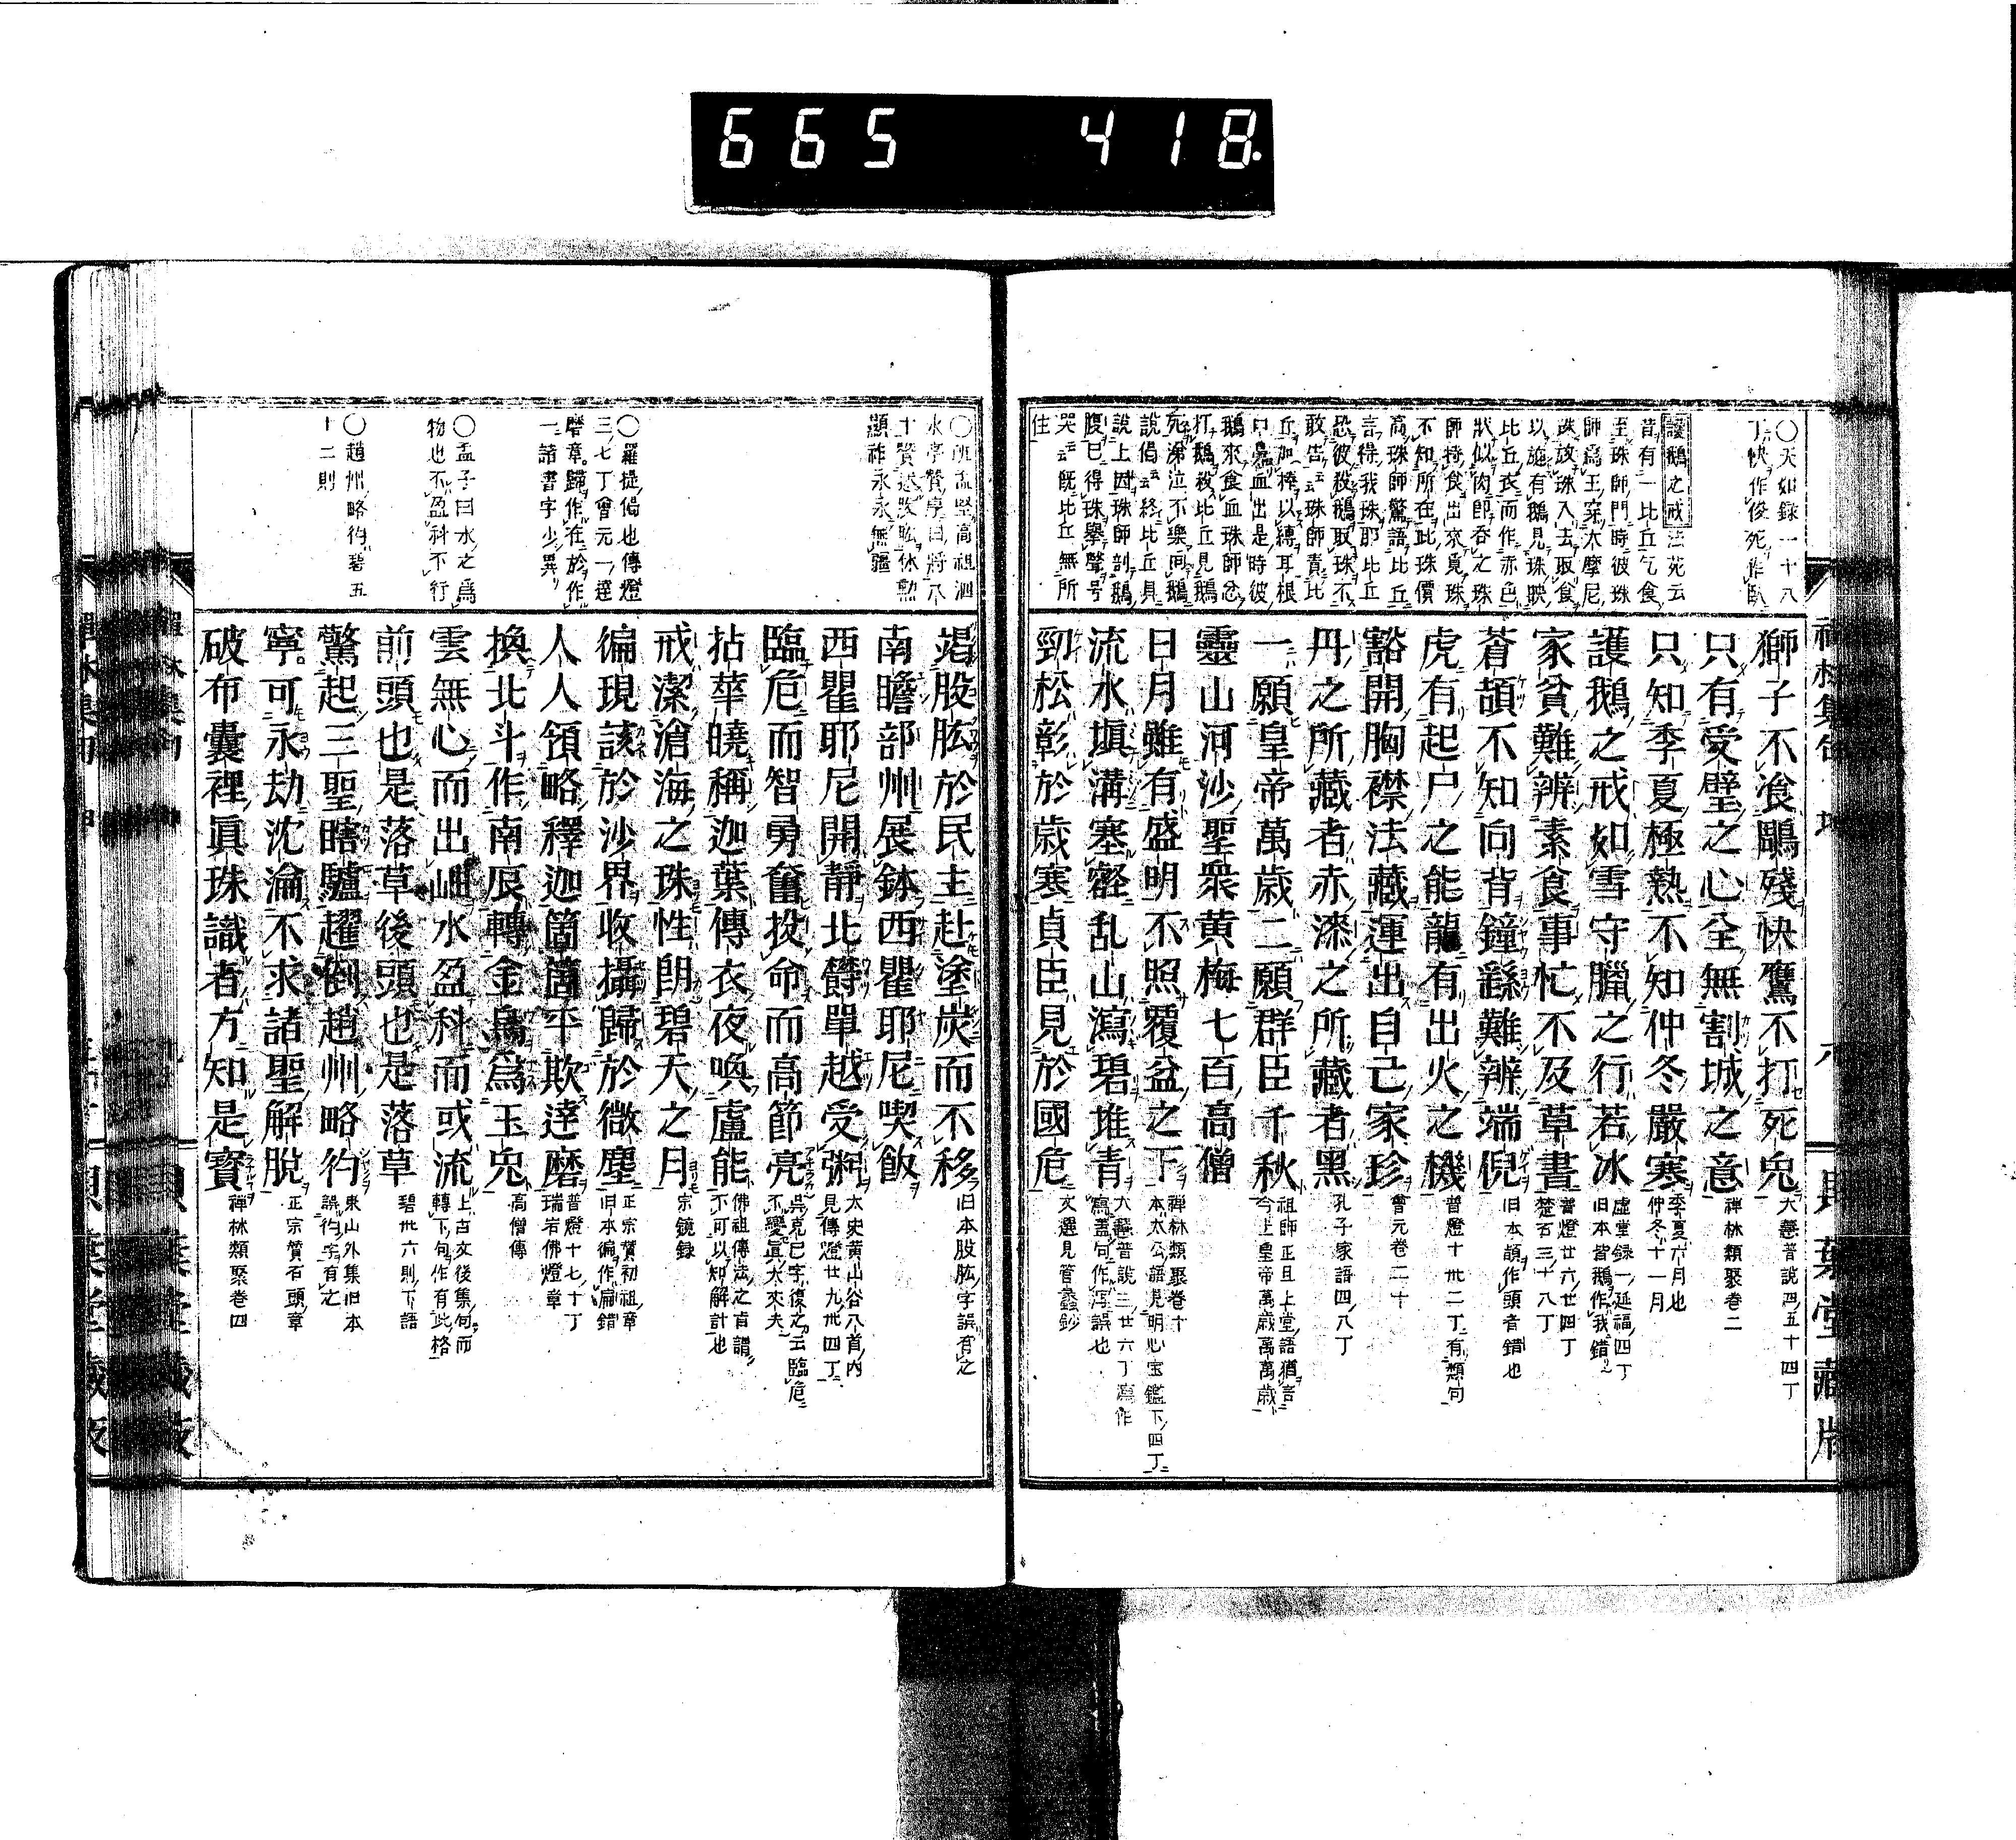 665 418.
〇天如録一十八
丁快作俊死作臥
護鵝之戒
昔有一比丘乞食
至珠師門時彼珠
師爲王穿大摩尼
珠放珠入去取食
以施有鵝見珠映
比丘衣而作赤色
狀似肉即呑之珠
師持食出來覓珠
不知所在此珠價
高珠師驚語比丘
言得我珠耶比丘
恐彼殺鵝取珠不
敢告云云珠師責比
丘加棒以縛耳根
口鼻血出是時彼
鵝來食血珠師忿
打鵝殺比丘見鵝
死涕泣不樂向鵝
說偈云云終比丘具
說上因珠師剖鵝
腹已得珠擧聲号
哭云云旣比丘無所
住
獅子不飡鵰殘快鷹不打死兎 大慧普說四五十四丁
只有受璧之心全無割城之意 禪林類聚卷二
只知季夏極熱不知仲冬嚴寒 季夏六月也仲冬十一月
護鵝之戒如雪守臘之行若冰 虛堂録一延福四丁旧本皆鵝作我錯
家貧難辨素食事忙不及草書 普燈廿六廿四丁楚石三十八丁
蒼頡不知向背鐘繇難辨端倪 旧本頡作頭者錯也
虎有起尸之能龍有出火之機 普燈十卅二丁有類句
豁開胸襟法藏運出自己家珍 會元卷二十
丹之所藏者赤漆之所藏者黑 孔子家語四八丁
一願皇帝萬歲二願群臣千秋 祖師正旦上堂語猶言今上皇帝萬歲萬萬歲
靈山河沙聖衆黄梅七百高僧
日月雖有盛明不照覆盆之下 禪林類聚卷十本太公語見明心宝鑑下四丁
流水塡溝塞壑乱山瀉碧堆青 大慧普說三廿六丁瀉作
勁松彰於歲寒貞臣見於國危 文選見管蠡鈔
禪林集句
貝葉堂藏版
水亭贊序曰將八
十贊述股肱休勲
顯祚永永無疆
〇羅提偈也傳燈
三七丁會元一達
磨章歸作在於作
一諸書字少異
〇孟子曰水之爲
物也不盈科不行
〇趙州略彴碧五
十二則
竭股肱於民主赴塗炭而不移 旧本股肱字誤有之
南瞻部州展鉢西瞿耶尼喫飯
西瞿耶尼開靜北欝單越受粥 太史黄山谷八首内見傳燈廿九卅四丁
臨危而智勇奮投命而高節亮 吳克己字復之云臨危不變眞大夾夫
拈華曉稱迦葉傳衣夜喚盧能 佛祖傳法之肯謂不可以知解計也
戒潔滄海之珠性朗碧天之月 宗鏡録
徧現該於沙界收攝歸於微塵 正宗贊初祖章旧本徧作扁錯
人人領略釋迦箇箇平欺達磨 普燈十七十丁瑞岩佛燈章
換北斗作南辰轉金烏爲玉兎 高僧傳
雲無心而出岫水盈科而或流 上古文後集句而轉下句作有此格
前頭也是落草後頭也是落草 碧卅六則下語
驚起三聖瞎驢趯倒趙州略彴 東山外集旧本誤彴字有之
寧可永劫沈淪不求諸聖解脫 正宗贊石頭章
破布囊裡眞珠識者方知是寳 禪林類聚卷四